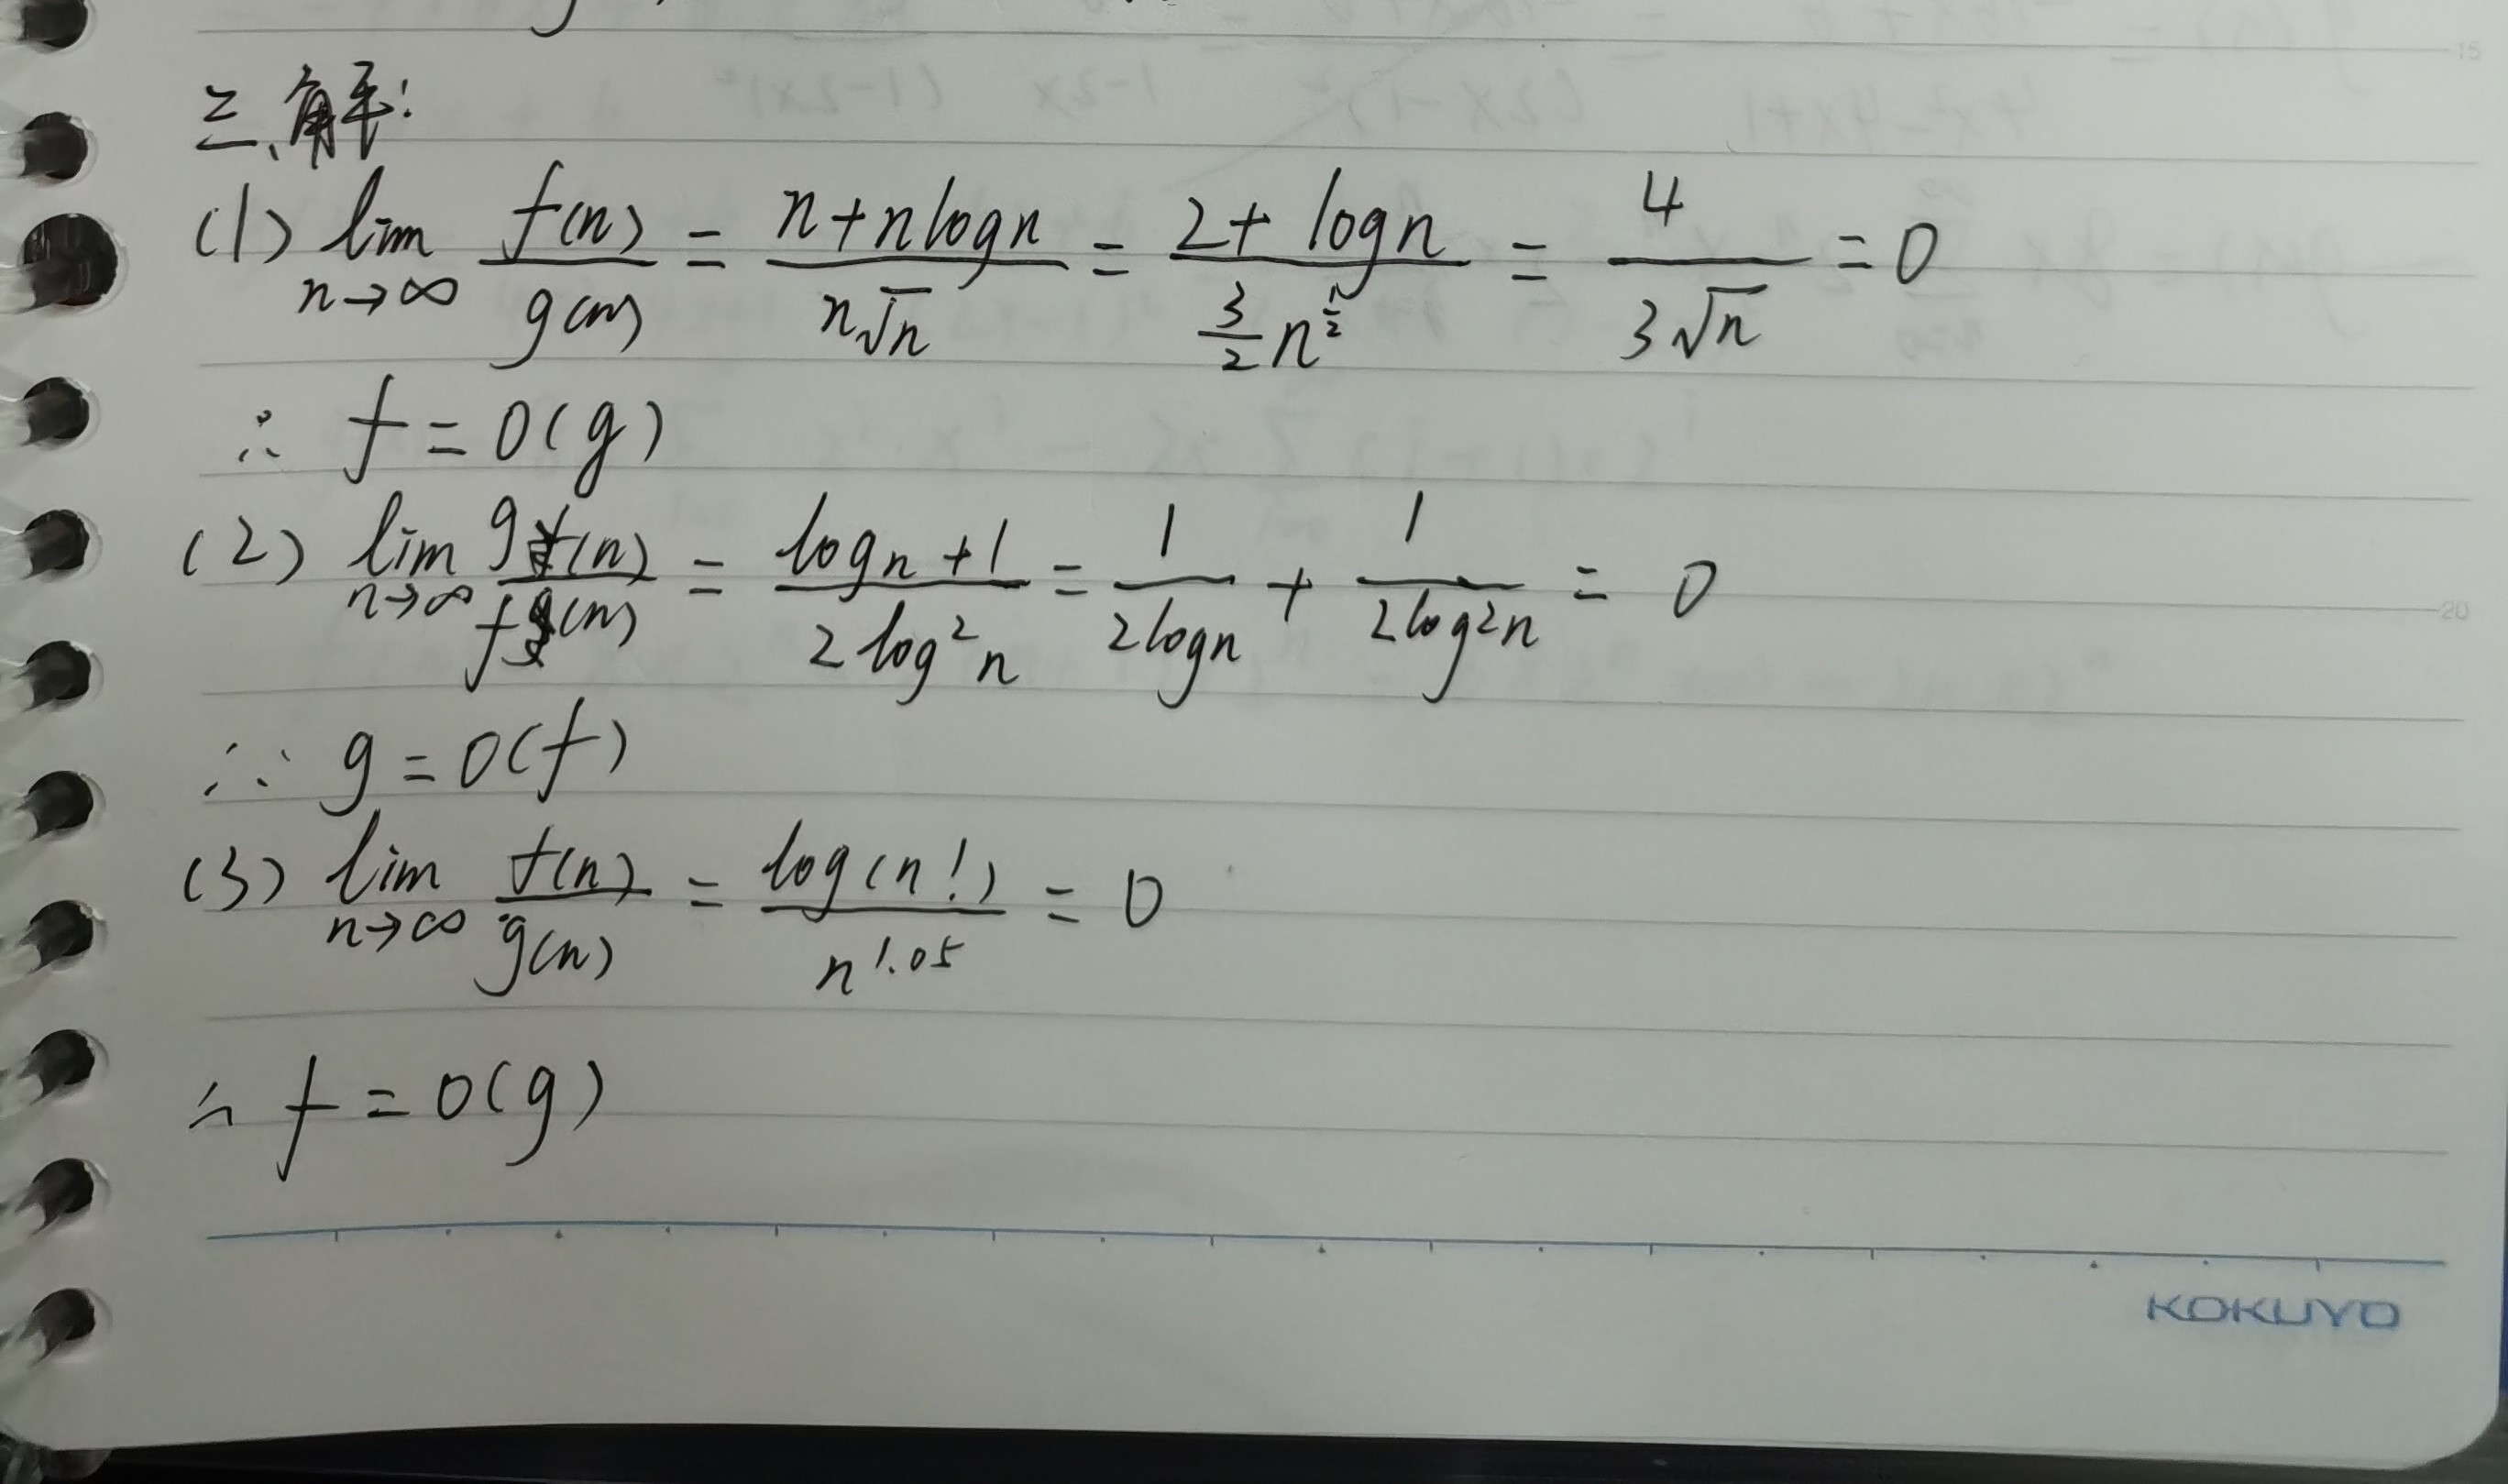 三、解:
(1) lim n→∞ f(n)/g(n) = (n+nlogn)/(n√n) = (2+logn)/((3/2)n^(1/2)) = 4/(3√n) = 0
∴ f = O(g)
(2) lim n→∞ g(n)/f(n) = (logn+1)/(2log²n) = 1/(2logn) + 1/(2log²n) = 0
∴ g = O(f)
(3) lim n→∞ f(n)/g(n) = log(n!)/n^1.05 = 0
∴ f = O(g)
KOKUYO
15
20